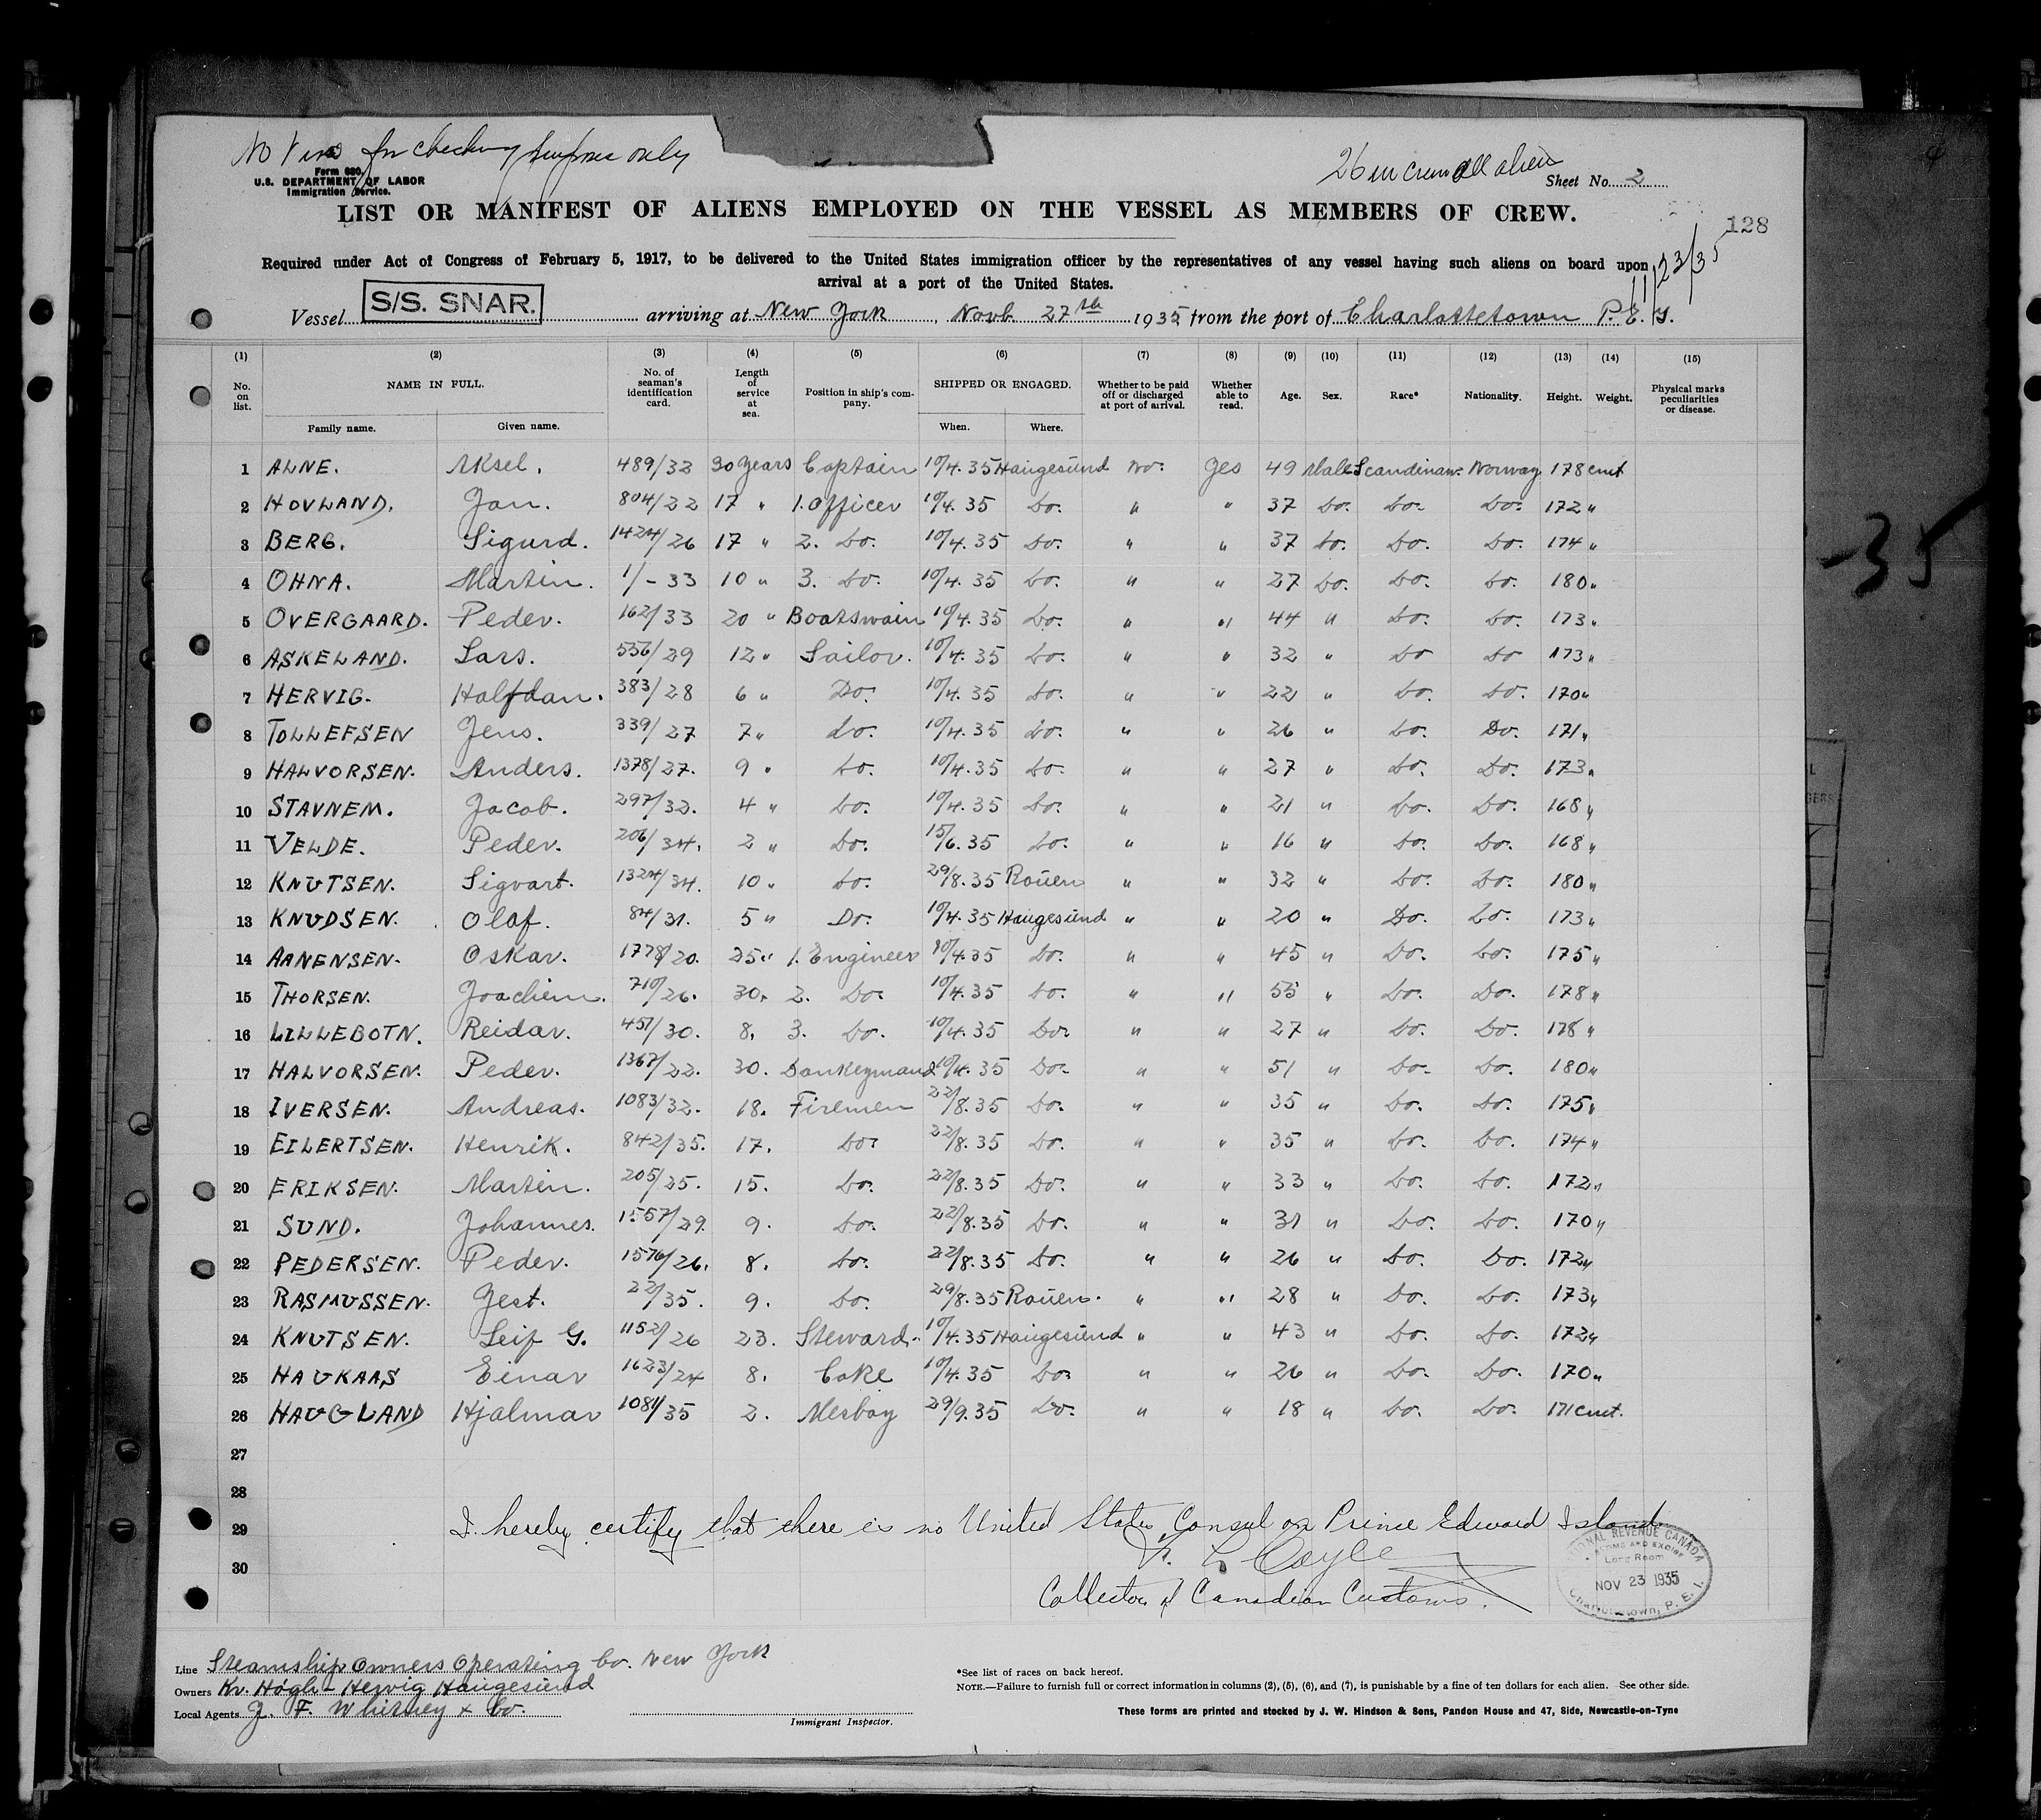 No Visa for checking purpose only
26 in crew all alien
Form 680.
U.S. DEPARTMENT OF LABOR
Immigration Service.
Sheet No. 2
LIST OR MANIFEST OF ALIENS EMPLOYED ON THE VESSEL AS MEMBERS OF CREW.
128
11/23/35
Required under Act of Congress of February 5, 1917, to be delivered to the United States immigration officer by the representatives of any vessel having such aliens on board upon
arrival at a port of the United States.
Vessel S/S. SNAR. arriving at New York Novb 27th 1935 from the port of Charlottetown P.E.I.
(1) (2) (3) (4) (5) (6) (7) (8) (9) (10) (11) (12) (13) (14) (15)
No. on list. NAME IN FULL. No. of seaman's identification card. Length of service at sea. Position in ship's company. SHIPPED OR ENGAGED. Whether to be paid off or discharged at port of arrival. Whether able to read. Age. Sex. Race* Nationality. Height. Weight. Physical marks peculiarities or disease.
Family name. Given name. When. Where.
1 ALNE. Aksel. 489/32 30 years Captain 10/4.35 Haugesund No. Yes 49 Male Scandinav. Norway 178 cmt
2 HOVLAND. Jan. 804/22 17 " 1. Officer 10/4.35 Do. " " 37 Do. Do. Do. 172 "
3 BERG. Sigurd. 1424/26 17 " 2. Do. 10/4.35 Do. " " 37 Do. Do. Do. 174 "
4 OHNA. Martin. 1/-33 10 " 3. Do. 10/4.35 Do. " " 27 Do. Do. Do. 180 "
5 OVERGAARD. Peder. 162/33 20 " Boatswain 10/4.35 Do. " " 44 " Do. Do. 173 "
6 ASKELAND. Lars. 556/29 12 " Sailor. 10/4.35 Do. " " 32 " Do Do 173 "
7 HERVIG. Halfdan. 383/28 6 " Do. 10/4.35 Do. " " 22 " Do. Do. 170 "
8 TOLLEFSEN Jens. 339/27 7 " Do. 10/4.35 Do. " " 26 " Do. Do. 171 "
9 HALVORSEN. Anders. 1378/27. 9 " Do. 10/4.35 Do. " " 27 " Do. Do. 173 "
10 STAVNEM. Jacob. 297/32. 4 " Do. 10/4.35 Do. " " 21 " Do. Do. 168 "
11 VELDE. Peder. 206/34. 2 " Do. 15/6.35 Do. " " 16 " Do. Do. 168 "
12 KNUTSEN. Sigvart. 1324/34. 10 " Do. 29/8.35 Rouen " " 32 " Do. Do. 180 "
13 KNUDSEN. Olaf. 84/31. 5 " Do. 10/4.35 Haugesund " " 20 " Do. Do. 173 "
14 AANENSEN. Oskar. 1778/20. 25 " 1. Engineer 10/4.35 Do. " " 45 " Do. Do. 175 "
15 THORSEN. Joachim. 710/26. 30. 2. Do. 10/4.35 Do. " " 55 " Do. Do. 178 "
16 LILLEBOTN. Reidar. 451/30. 8. 3. Do. 10/4.35 Do. " " 27 " Do. Do. 178 "
17 HALVORSEN. Peder. 1367/22. 30. Donkeymand 10/4.35 Do. " " 51 " Do. Do. 180 "
18 IVERSEN. Andreas. 1083/32. 18. Firemen 22/8.35 Do. " " 35 " Do. Do. 175 "
19 EILERTSEN. Henrik. 842/35. 17. Do. 22/8.35 Do. " " 35 " Do. Do. 174 "
20 ERIKSEN. Martin. 205/25. 15. Do. 22/8.35 Do. " " 33 " Do. Do. 172 "
21 SUND. Johannes. 1557/29. 9. Do. 22/8.35 Do. " " 31 " Do. Do. 170 "
22 PEDERSEN. Peder. 1576/26. 8. Do. 22/8.35 Do. " " 26 " Do. Do. 172 "
23 RASMUSSEN. Gest. 22/35. 9. Do. 29/8.35 Rouen. " " 28 " Do. Do. 173 "
24 KNUTSEN. Leif G. 1152/26 23. Steward. 10/4.35 Haugesund " " 43 " Do. Do. 172 "
25 HAUKAAS Einar 1623/24 8. Coke 10/4.35 Do. " " 26 " Do. Do. 170 "
26 HAUGLAND Hjalmar 1081/35 2. Mesboy 29/9.35 Do. " " 18 " Do. Do. 171 cmt.
27
28
29 I hereby certify that there is no United States Consul on Prince Edward Island
30
Coyle
Collector of Canadian Customs.
NATIONAL REVENUE CANADA
CUSTOMS AND EXCISE
Long Room
NOV 23 1935
Charlottetown, P. E. I.
-35
Line Steamship Owners Operating Co. New York
Owners Kr. Høgh-Hervig Haugesund
Local Agents J. F. Whitney & Co.
Immigrant Inspector.
*See list of races on back hereof.
NOTE.—Failure to furnish full or correct information in columns (2), (5), (6), and (7), is punishable by a fine of ten dollars for each alien. See other side.
These forms are printed and stocked by J. W. Hindson & Sons, Pandon House and 47, Side, Newcastle-on-Tyne